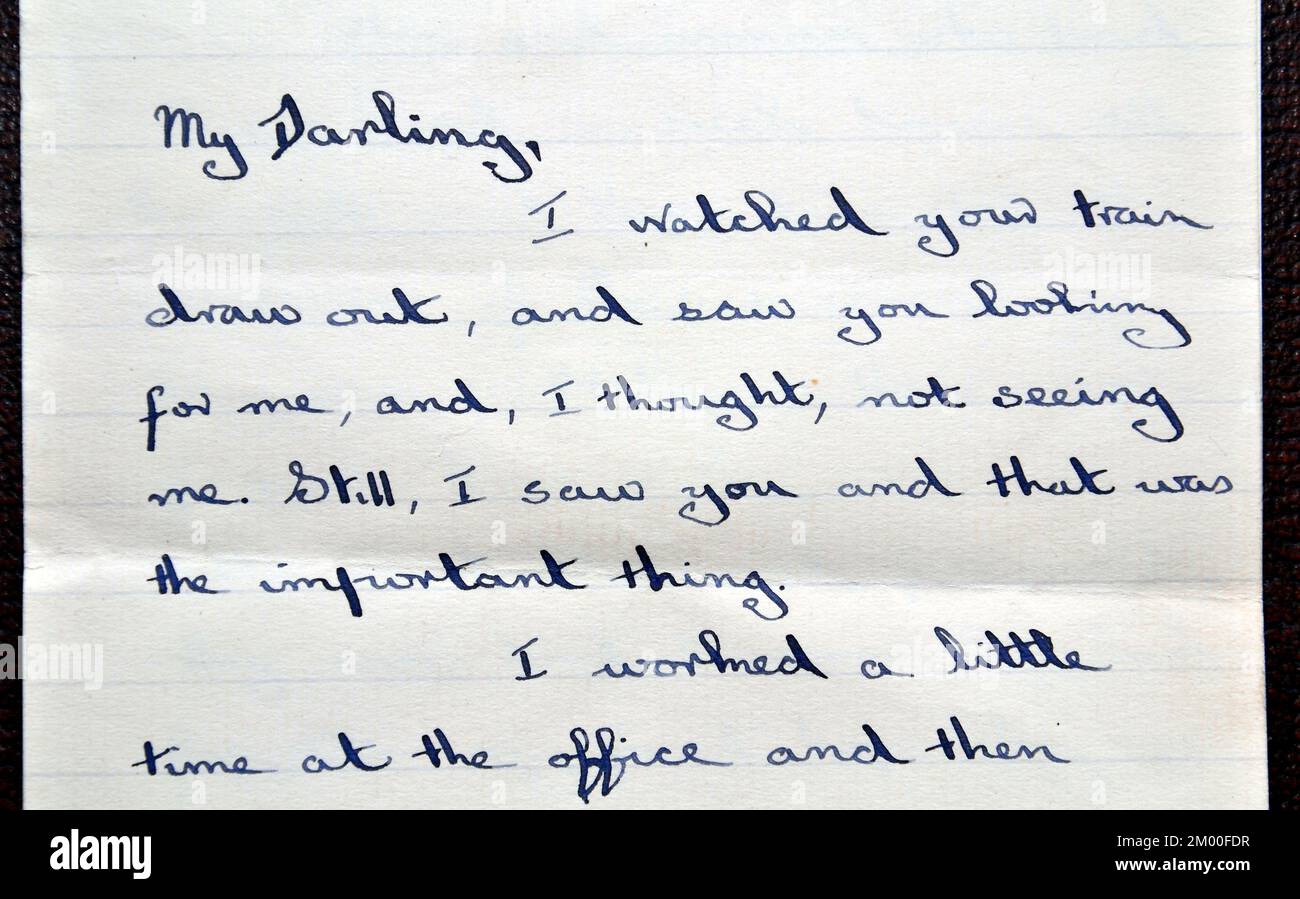 My Darling,
I watched your train
draw out, and saw you looking
for me, and, I thought, not seeing
me. Still, I saw you and that was
the important thing.
I worked a little
time at the office and then
alamy
Image ID: 2M00FDR
www.alamy.com